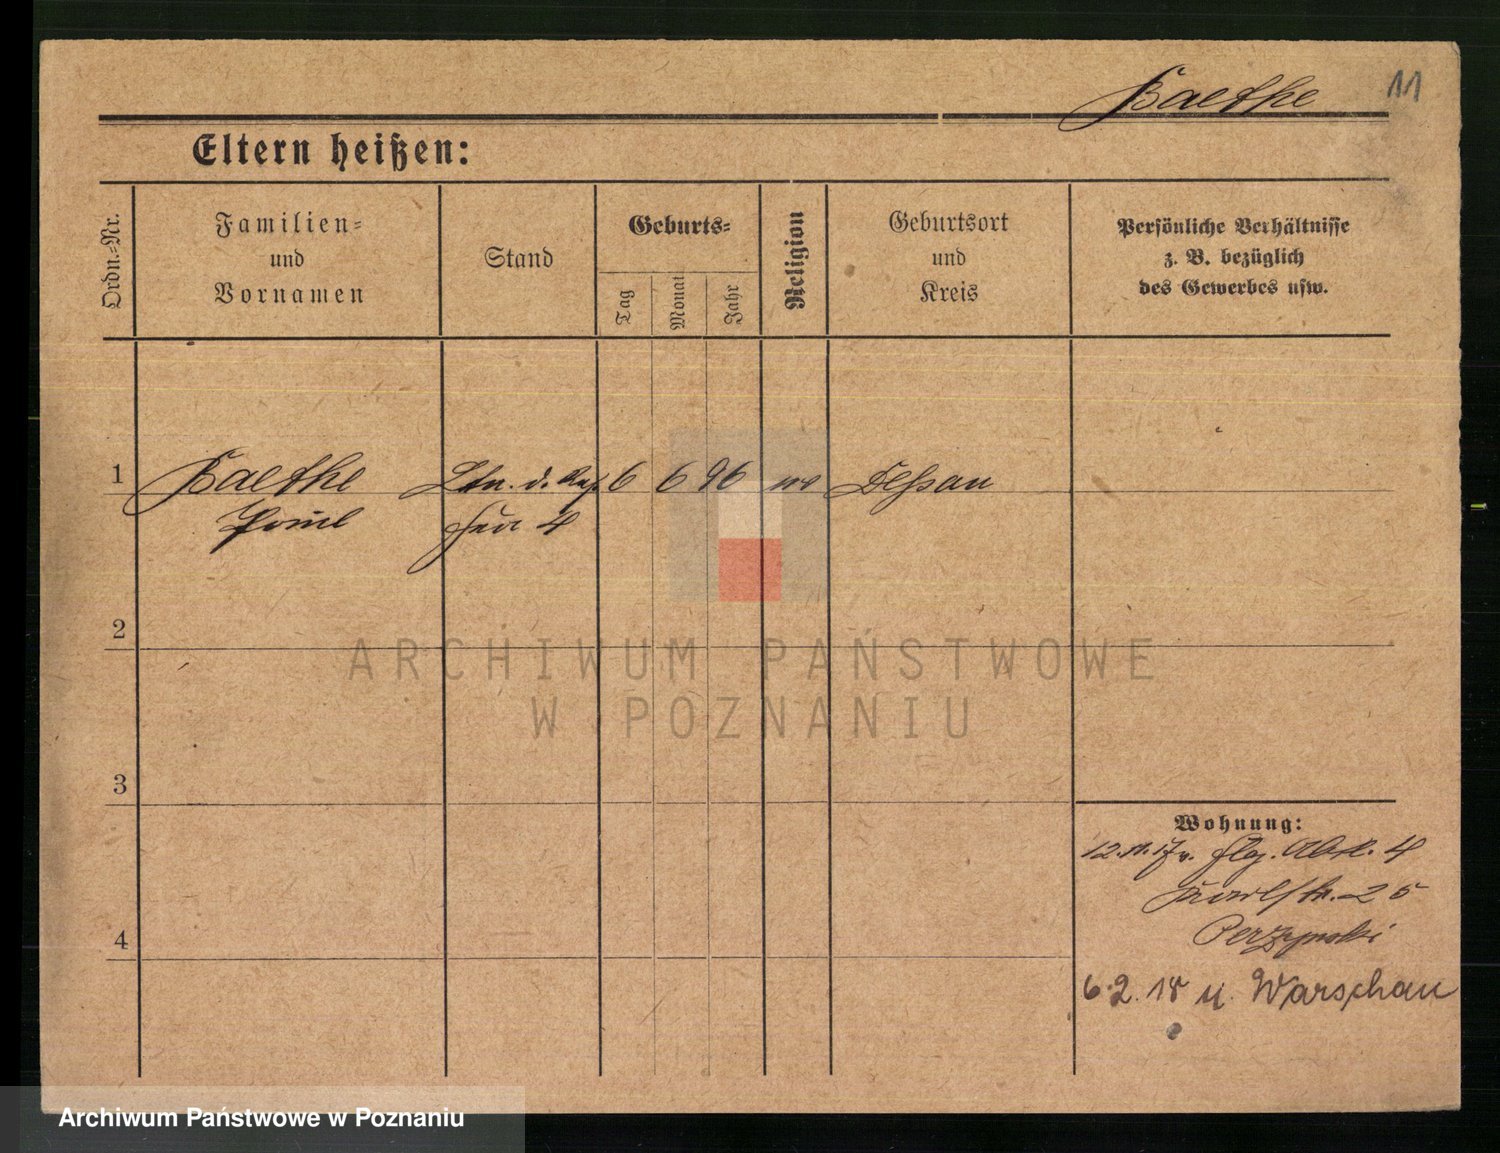 Baethe 11
Eltern heißen:
Ordn.-Nr.
Familien-
und
Vornamen
Stand
Geburts-
Tag
Monat
Jahr
Religion
Geburtsort
und
Kreis
Persönliche Verhältnisse
z. B. bezüglich
des Gewerbes usw.
1 Baethe Ltn. d. Res. 6 6 96 Dessau
Paul 4
2
3
4
Wohnung:
12.11.17 v. Flg. Abt. 4
25
Perzynski
6.2.18 n. Warschau
ARCHIWUM PAŃSTWOWE
W POZNANIU
Archiwum Państwowe w Poznaniu